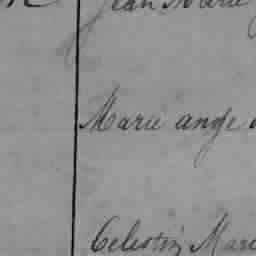 Jean Marie
Marie ange
Celestin Mari